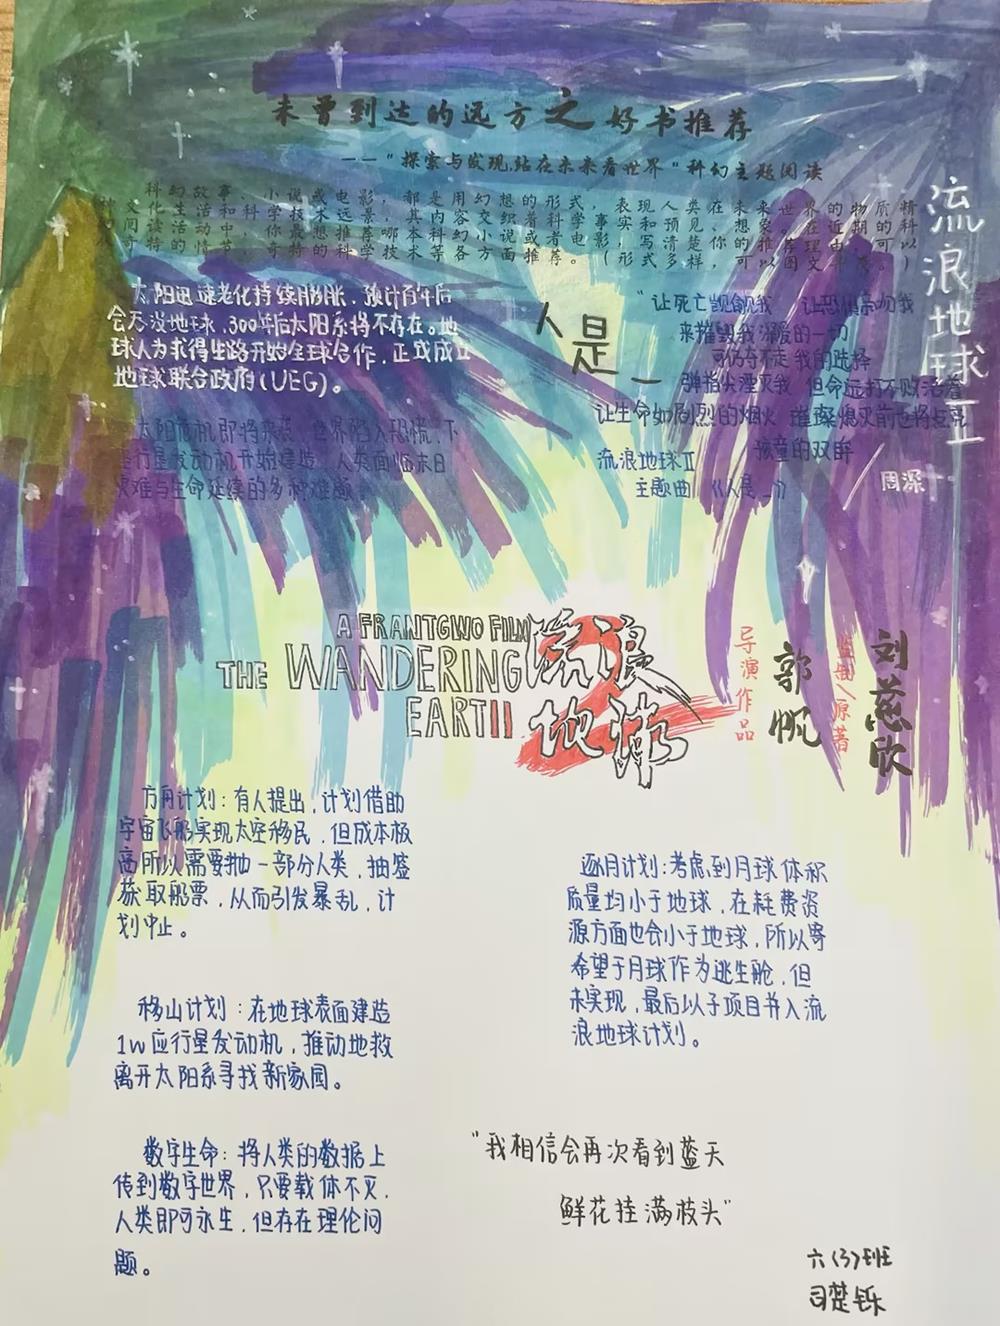 未曾到达的远方之好书推荐
——“探索与发现,站在未来看世界”科幻主题阅读
科幻故事、小说或电影,都是用幻想的形式,表现人类在未来世界的物质精
文化生活和科学技术远景,其内容交织着科学事实和预见、想象。在近期的科
阅读活动中,你最想推荐哪本科幻小说或者电影,写清楚你的推荐理由(可以
特的情节,奇特的科学技术等各方面推荐。(形式多样,可以图文
流浪地球Ⅱ
太阳迅速老化持续膨胀,预计百年后
会吞没地球,300年后太阳系将不存在。地
球人为求得生路开始全球合作,正式成立
地球联合政府(UEG)。
太阳危机即将来袭,世界陷入恐慌,下
行星发动机开始建造,人类面临末日
艰难与生命延续的多种难题
人是_
“让死亡觊觎我 让恐惧亲吻我
来摧毁我深爱的一切
可仍夺不走 我的选择
弹指尖湮灭我 但命运打不败活着
让生命如剧烈的烟火 璀璨熄灭前也将点亮
孩童的双眸
流浪地球Ⅱ
主题曲 《人是_》
周深
A FRANTGWO FILM
THE WANDERING
EARTII
流浪
地球
2
导演作品
郭帆
监制/原著
刘慈欣
方舟计划:有人提出,计划借助
宇宙飞船实现太空移民,但成本极
高所以需要抛一部分人类,抽签
获取船票,从而引发暴乱,计
划中止。
移山计划:在地球表面建造
1w应行星发动机,推动地救
离开太阳系寻找新家园。
数字生命:将人类的数据上
传到数字世界,只要载体不灭,
人类即可永生,但存在理伦问
题。
逐月计划:考虑到月球体积
质量均小于地球,在耗费资
源方面也会小于地球,所以寄
希望于月球作为逃生舱,但
未实现,最后以子项目并入流
浪地球计划。
“我相信会再次看到蓝天
鲜花挂满枝头”
六(3)班
司楚铄